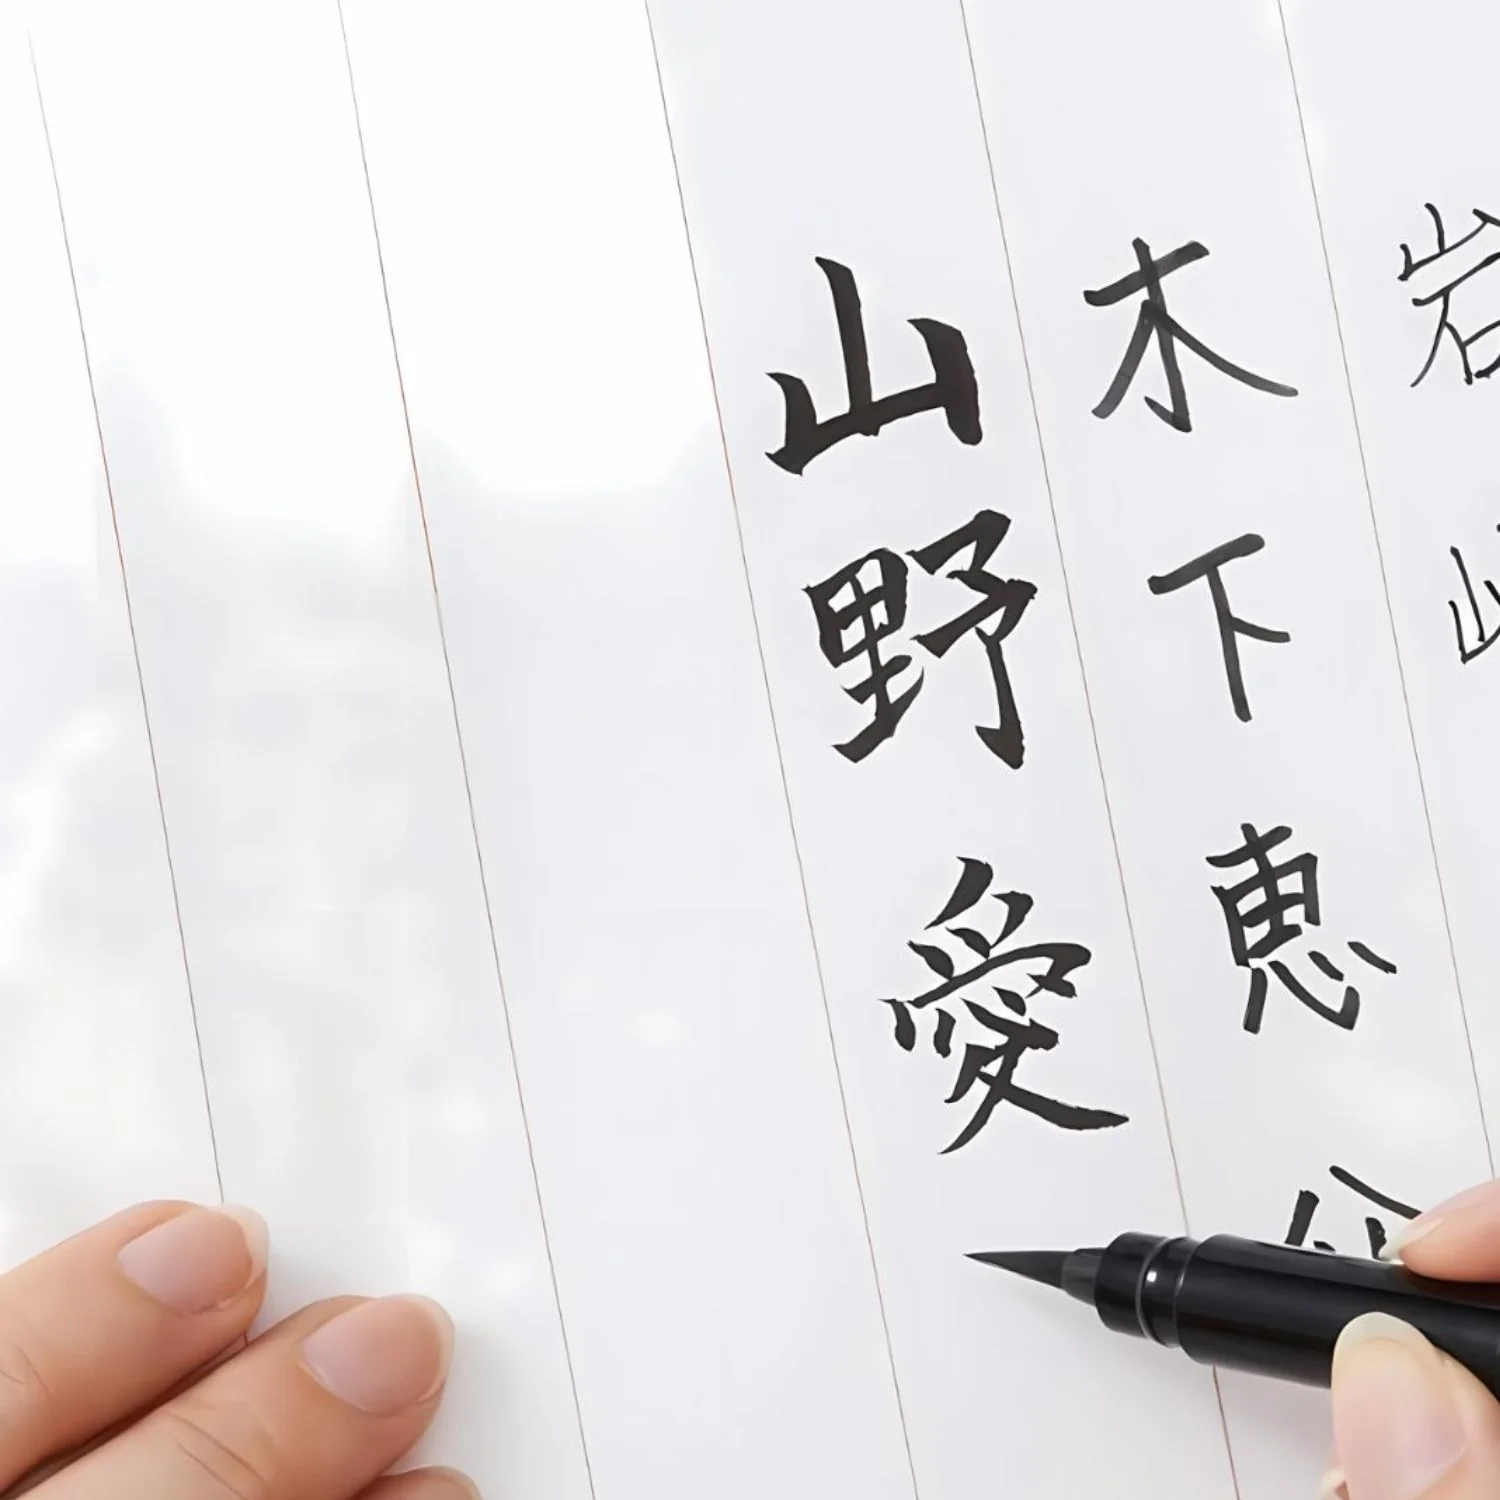 岩
木下恵
山野愛